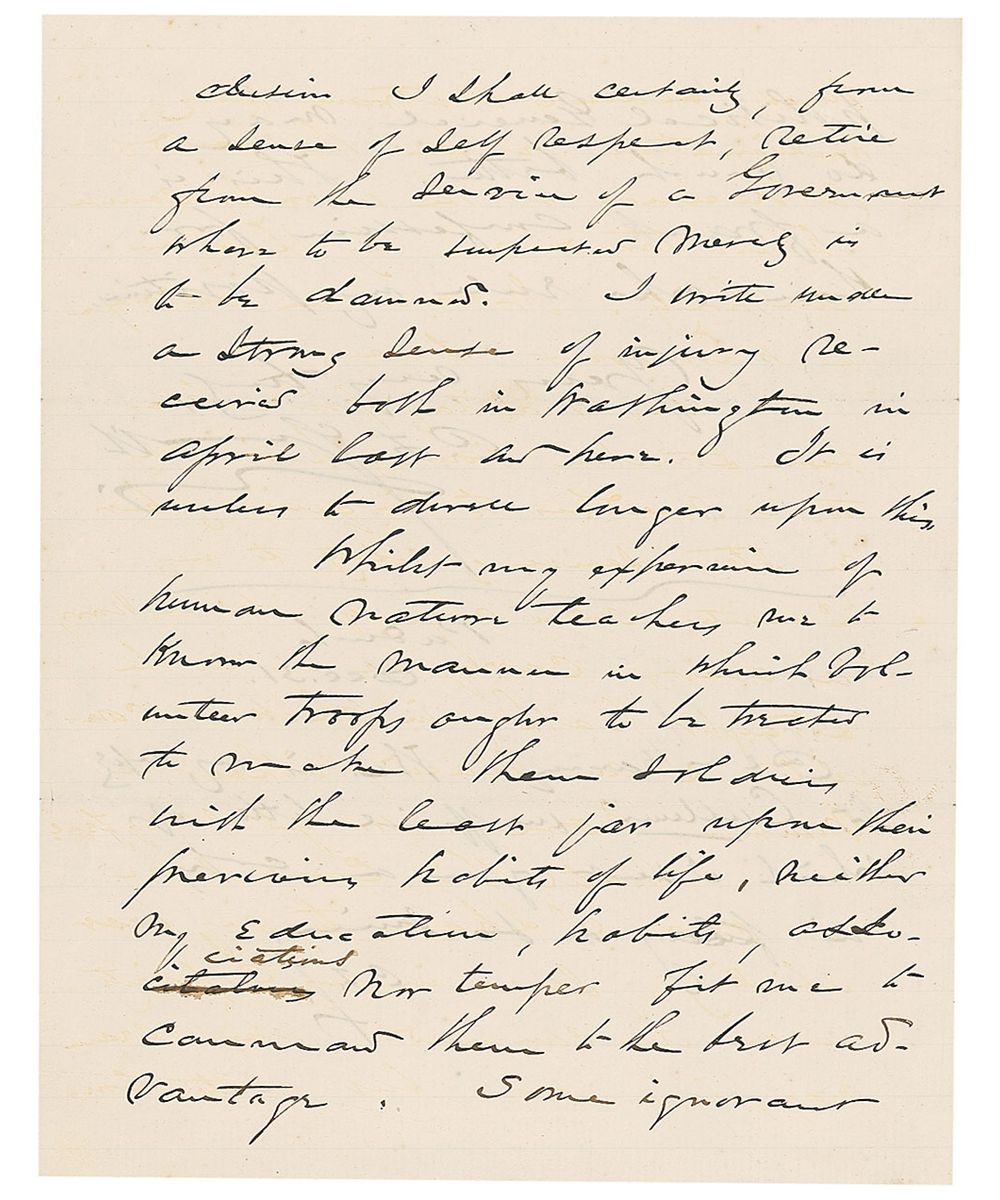 clusion I shall certainly, from
a sense of self respect, retire
from the service of a Government
where to be suspected merely is
to be damned. I write under
a strong sense of injury re-
ceived both in Washington in
April last and here. It is
useless to dwell longer upon this.
Whilst my experience of
human nature teaches me to
know the manner in which Vol-
unteer Troops ought to be treated
to make them soldiers
with the least jar upon their
previous habits of life, neither
my Education, habits, asso-
ciations
nor temper fit me to
command them to the best ad-
vantage. Some ignorant